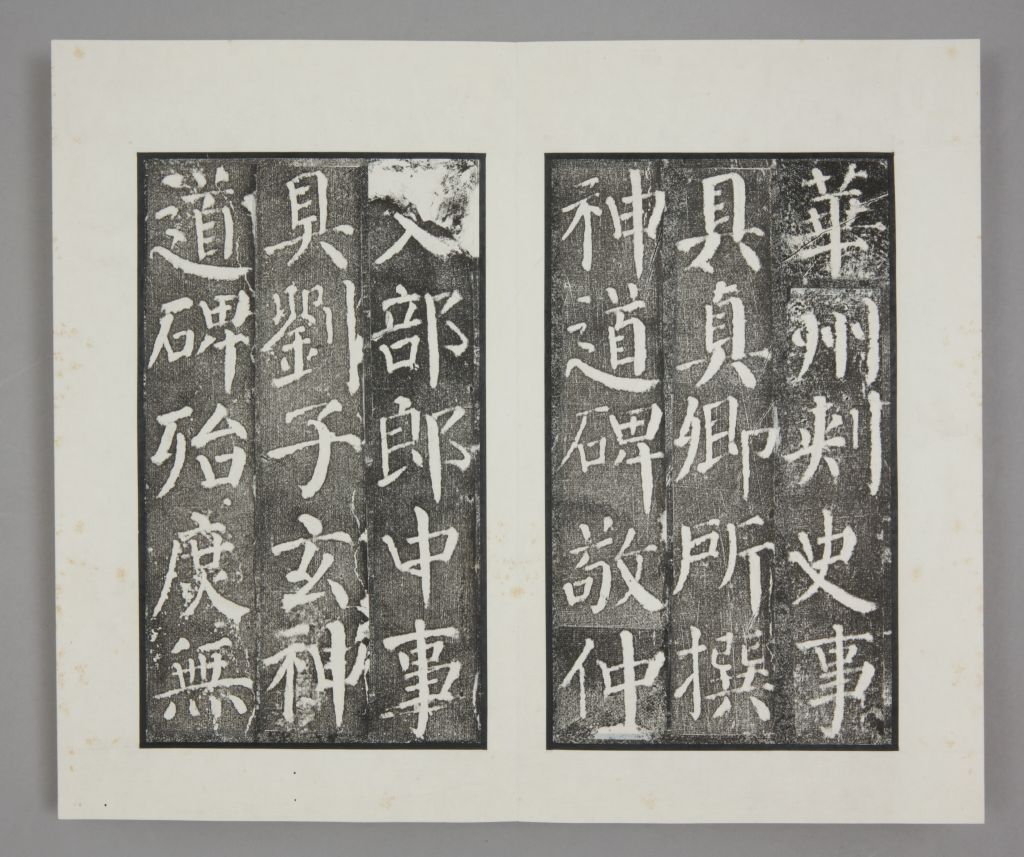 華州刺史事
具真卿所撰
神道碑敬仲
吏部郎中事
具劉子玄神
道碑殆庶無